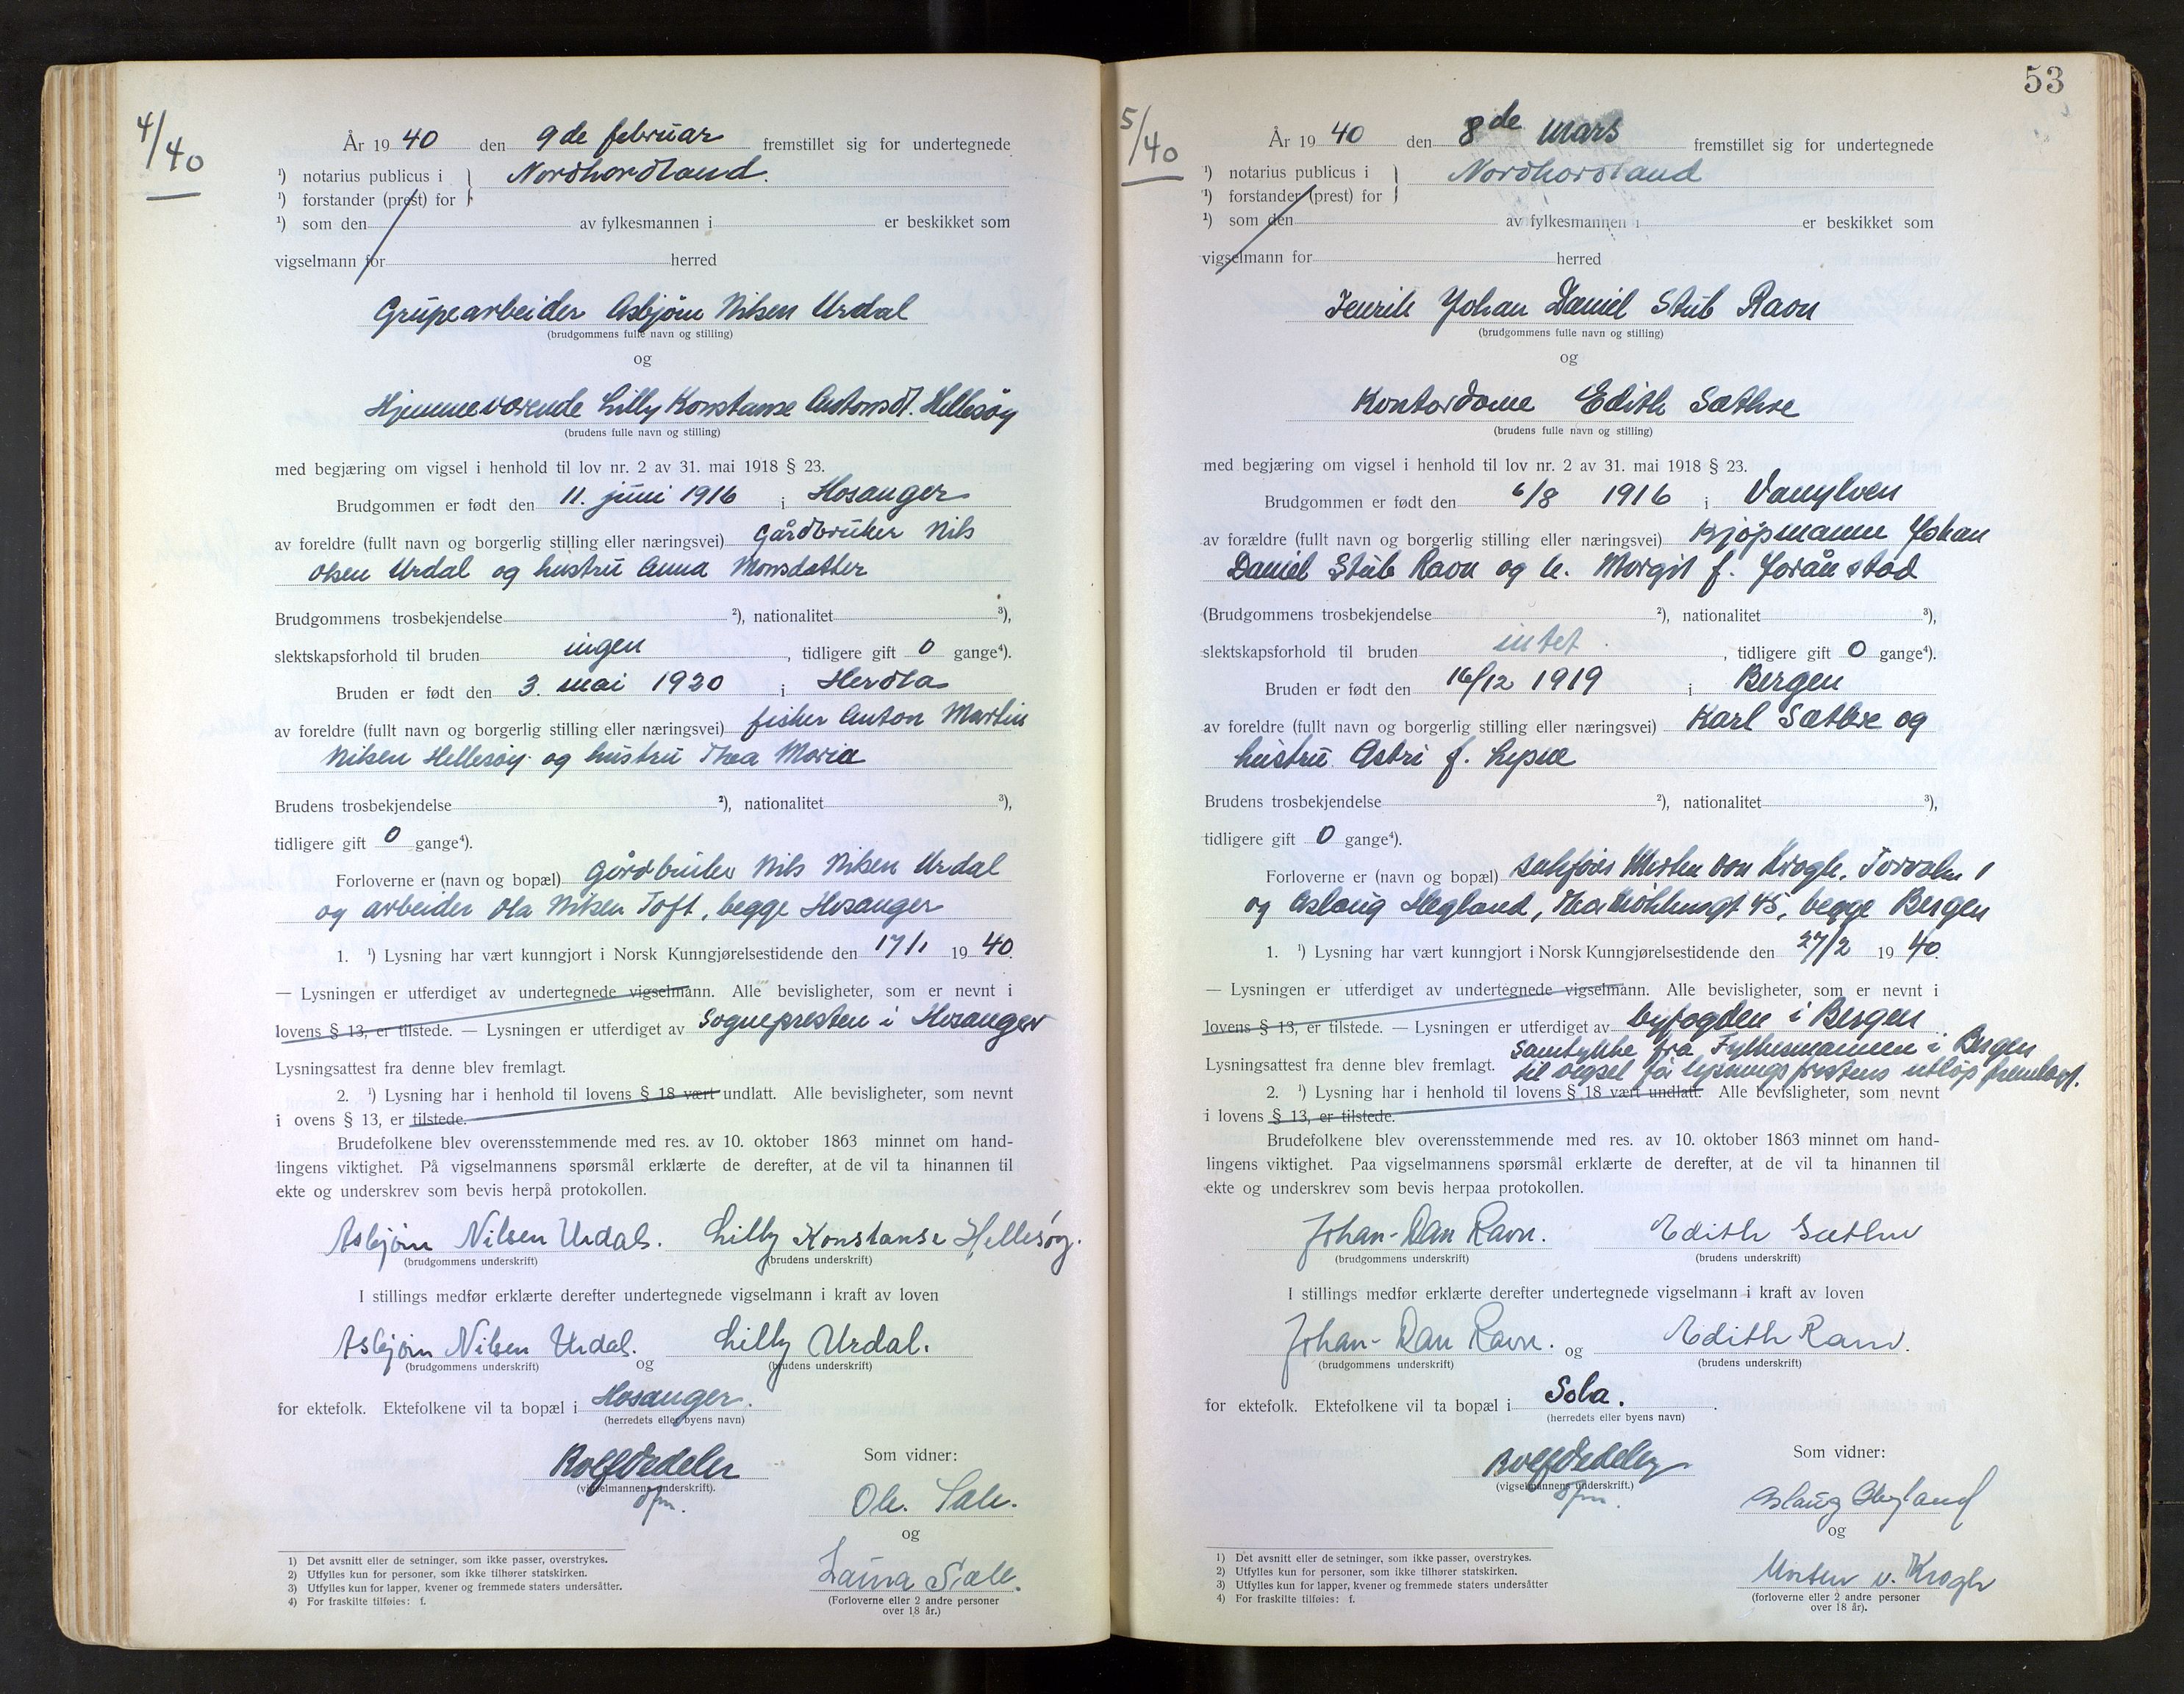 4/40
År 1940 den 9de februar fremstillet sig for undertegnede
¹) notarius publicus i } Nordhordland.
¹) forstander (prest) for
¹) som den av fylkesmannen i er beskikket som
vigselmann for herred
Grupearbeider Asbjørn Nilsen Urdal
(brudgommens fulle navn og stilling)
og
Hjemmeværende Lilly Konstanse Antonsdt. Hellesøy
(brudens fulle navn og stilling)
med begjæring om vigsel i henhold til lov nr. 2 av 31. mai 1918 § 23.
Brudgommen er født den 11. juni 1916 i Hosanger
av foreldre (fullt navn og borgerlig stilling eller næringsvei) Gårdbruker Nils
Olsen Urdal og hustru Anna Monsdatter
Brudgommens trosbekjendelse ²), nationalitet ³),
slektskapsforhold til bruden ingen, tidligere gift 0 gange⁴).
Bruden er født den 3. mai 1920 i Herdla
av foreldre (fullt navn og borgerlig stilling eller næringsvei) fisker Anton Martin
Nilsen Hellesøy og hustru Thea Maria
Brudens trosbekjendelse ²), nationalitet ³),
tidligere gift 0 gange⁴).
Forloverne er (navn og bopæl) Gårdbruker Nils Nilsen Urdal
og arbeider Ola Nilsen Toft, begge Hosanger
1. ¹) Lysning har vært kunngjort i Norsk Kunngjørelsestidende den 17/1 1940.
— Lysningen er utferdiget av undertegnede vigselmann. Alle bevisligheter, som er nevnt i
lovens § 13, er tilstede. — Lysningen er utferdiget av Sognepresten i Hosanger
Lysningsattest fra denne blev fremlagt.
2. ¹) Lysning har i henhold til lovens § 18 vært undlatt. Alle bevisligheter, som nevnt
i ovens § 13, er tilstede.
Brudefolkene blev overensstemmende med res. av 10. oktober 1863 minnet om hand-
lingens viktighet. På vigselmannens spørsmål erklærte de derefter, at de vil ta hinannen til
ekte og underskrev som bevis herpå protokollen.
Asbjørn Nilsen Urdal. Lilly Konstanse Hellesøy.
(brudgommens underskrift) (brudens underskrift)
I stillings medfør erklærte derefter undertegnede vigselmann i kraft av loven
Asbjørn Nilsen Urdal. og Lilly Urdal.
(brudgommens underskrift) (brudens underskrift)
for ektefolk. Ektefolkene vil ta bopæl i Hosanger.
(herredets eller byens navn)
Som vidner:
(vigselmannens underskrift).
Ole. Sale.
og
Laura Sale.
(Forloverne eller 2 andre personer
over 18 år.)
1) Det avsnitt eller de setninger, som ikke passer, overstrykes.
2) Utfylles kun for personer, som ikke tilhører statskirken.
3) Utfylles kun for lapper, kvener og fremmede staters undersåtter.
4) For fraskilte tilføies: f.
53
5/40
År 1940 den 8de mars fremstillet sig for undertegnede
¹) notarius publicus i } Nordhordland
¹) forstander (prest) for
¹) som den av fylkesmannen i er beskikket som
vigselmann for herred
Henrik Johan Daniel Stub Ravn
(brudgommens fulle navn og stilling)
og
Kontordame Edith Sæthre
(brudens fulle navn og stilling)
med begjæring om vigsel i henhold til lov nr. 2 av 31. mai 1918 § 23.
Brudgommen er født den 6/8 1916 i Vanylven
av forældre (fullt navn og borgerlig stilling eller næringsvei) Kjøpmann Johan
Daniel Stub Ravn og h. Margit f. Jorånstad
(Brudgommens trosbekjendelse ²), nationalitet ³),
slektskapsforhold til bruden intet, tidligere gift 0 gange⁴).
Bruden er født den 16/12 1919 i Bergen
av foreldre (fullt navn og borgerlig stilling eller næringsvei) Karl Sæthre og
hustru Astri f. Lepsøe
Brudens trosbekjendelse ²), nationalitet ³),
tidligere gift 0 gange⁴).
Forloverne er (navn og bopæl) sakfører Morten von Krogh, Torvalm 1
og Aslaug Hegland, 45, begge Bergen
1. ¹) Lysning har vært kunngjort i Norsk Kunngjørelsestidende den 27/2 1940.
— Lysningen er utferdiget av undertegnede vigselmann. Alle bevisligheter, som er nevnt i
lovens § 13, er tilstede. — Lysningen er utferdiget av byfogden i Bergen
Samtykke fra Fylkesmannen i Bergen
Lysningsattest fra denne blev fremlagt. til vigsel før lysningsfristens utløp fremlagt.
2. ¹) Lysning har i henhold til lovens § 18 vært undlatt. Alle bevisligheter, som nevnt
i lovens § 13, er tilstede.
Brudefolkene blev overensstemmende med res. av 10. oktober 1863 minnet om hand-
lingens viktighet. Paa vigselmannens spørsmål erklærte de derefter, at de vil ta hinannen til
ekte og underskrev som bevis herpaa protokollen.
Johan-Dan Ravn. Edith Sæthre
(brudgommens underskrift) (brudens underskrift)
I stillings medfør erklærte derefter undertegnede vigselmann i kraft av loven
Johan-Dan Ravn. og Edith Ravn.
(brudgommens underskrift) (brudens underskrift)
for ektefolk. Ektefolkene vil ta bopæl i Sola.
(herredets eller byens navn)
Som vidner:
(vigselmannens underskrift.)
Aslaug Hegland
og
Morten v. Krogh
(forloverne eller 2 andre personer
over 18 år).
1) Det avsnitt eller de setninger, som ikke passer, overstrykes.
2) Utfylles kun for personer, som ikke tilhører statskirken.
3) Utfylles kun for lapper, kvener og fremmede staters undersåtter
4) For fraskilte tilføies: f.